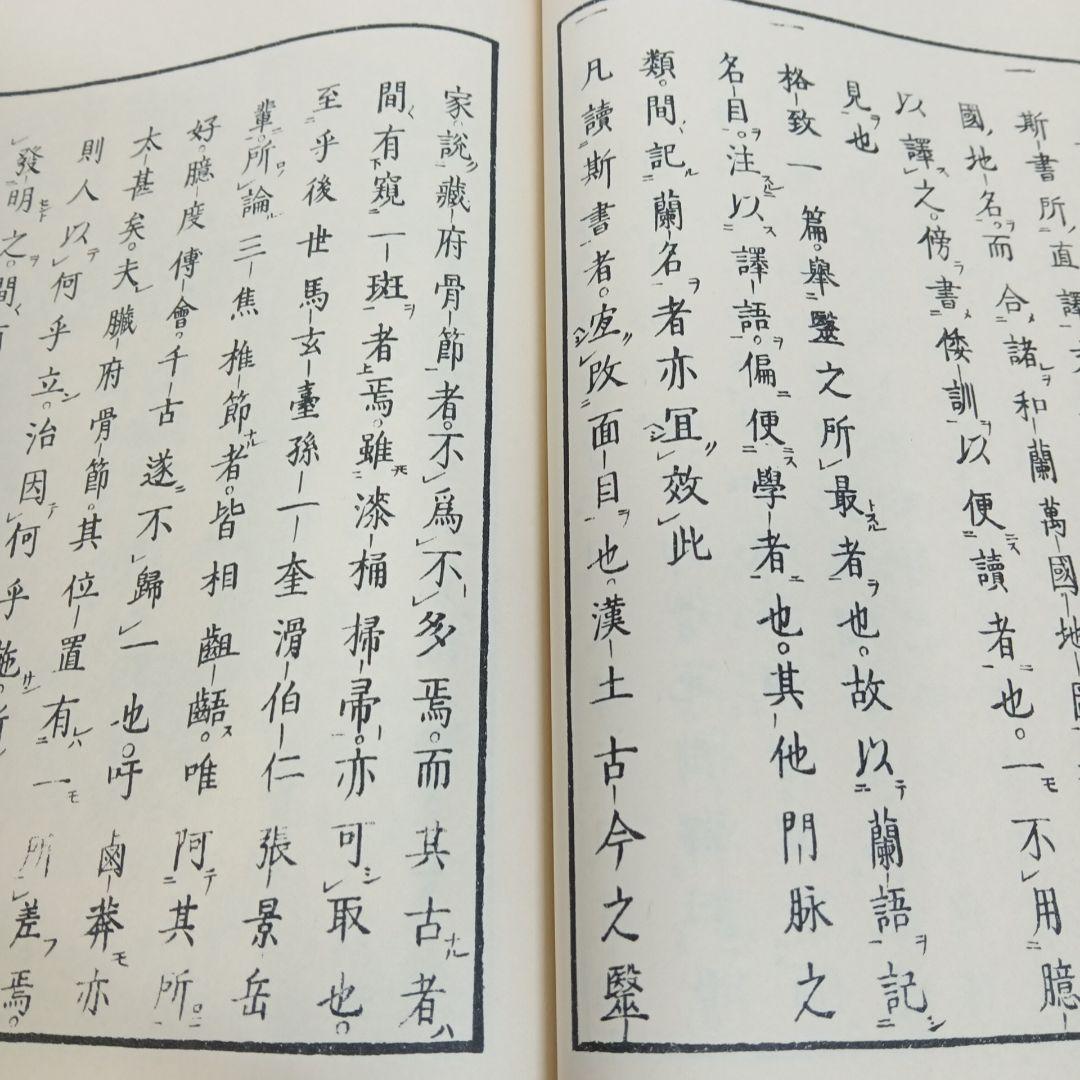 一斯書所直譯
國地名而合諸和蘭萬國地
以譯之傍書倭訓以便讀者也。一不用臆
見也
一格致一篇。擧毉之所最者也。故以蘭語記
名目。注以譯語。偏便學者也。其他門脉之
類。間記蘭名者亦冝效此
一凡讀斯書者。宜改面目也。漢土古今之毉
家説藏府骨節者。不爲不多焉。而其古者
間有窺一斑者焉。雖漆桶掃帚。亦可取也。
至乎後世馬玄臺孫一奎滑伯仁張景岳
輩。所論三焦椎節者。皆相齟齬。唯阿其所。
好。臆度傳會。千古遂不歸一也。吁鹵莽亦
太甚矣。夫臓府骨節。其位置有一所差焉。
則人以何乎立。治因何乎施。
發明之。間